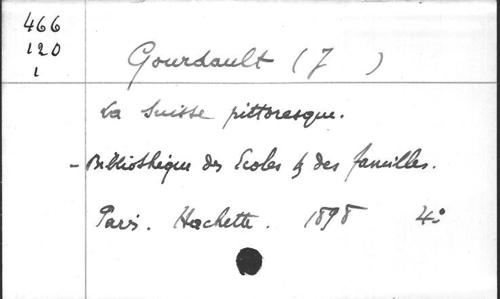 466
120
1
Gourdault (J )
La Suisse pittoresque.
- Bibliothèque des Ecoles & des familles.
Paris. Hachette. 1898 4º